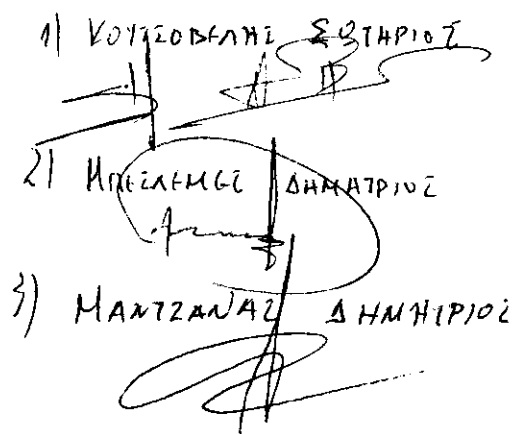 1) ΚΟΥΤΣΟΒΕΛΗΣ ΣΩΤΗΡΙΟΣ
2) ΔΗΜΗΤΡΙΟΣ
3) ΜΑΝΤΖΑΝΑΣ ΔΗΜΗΤΡΙΟΣ